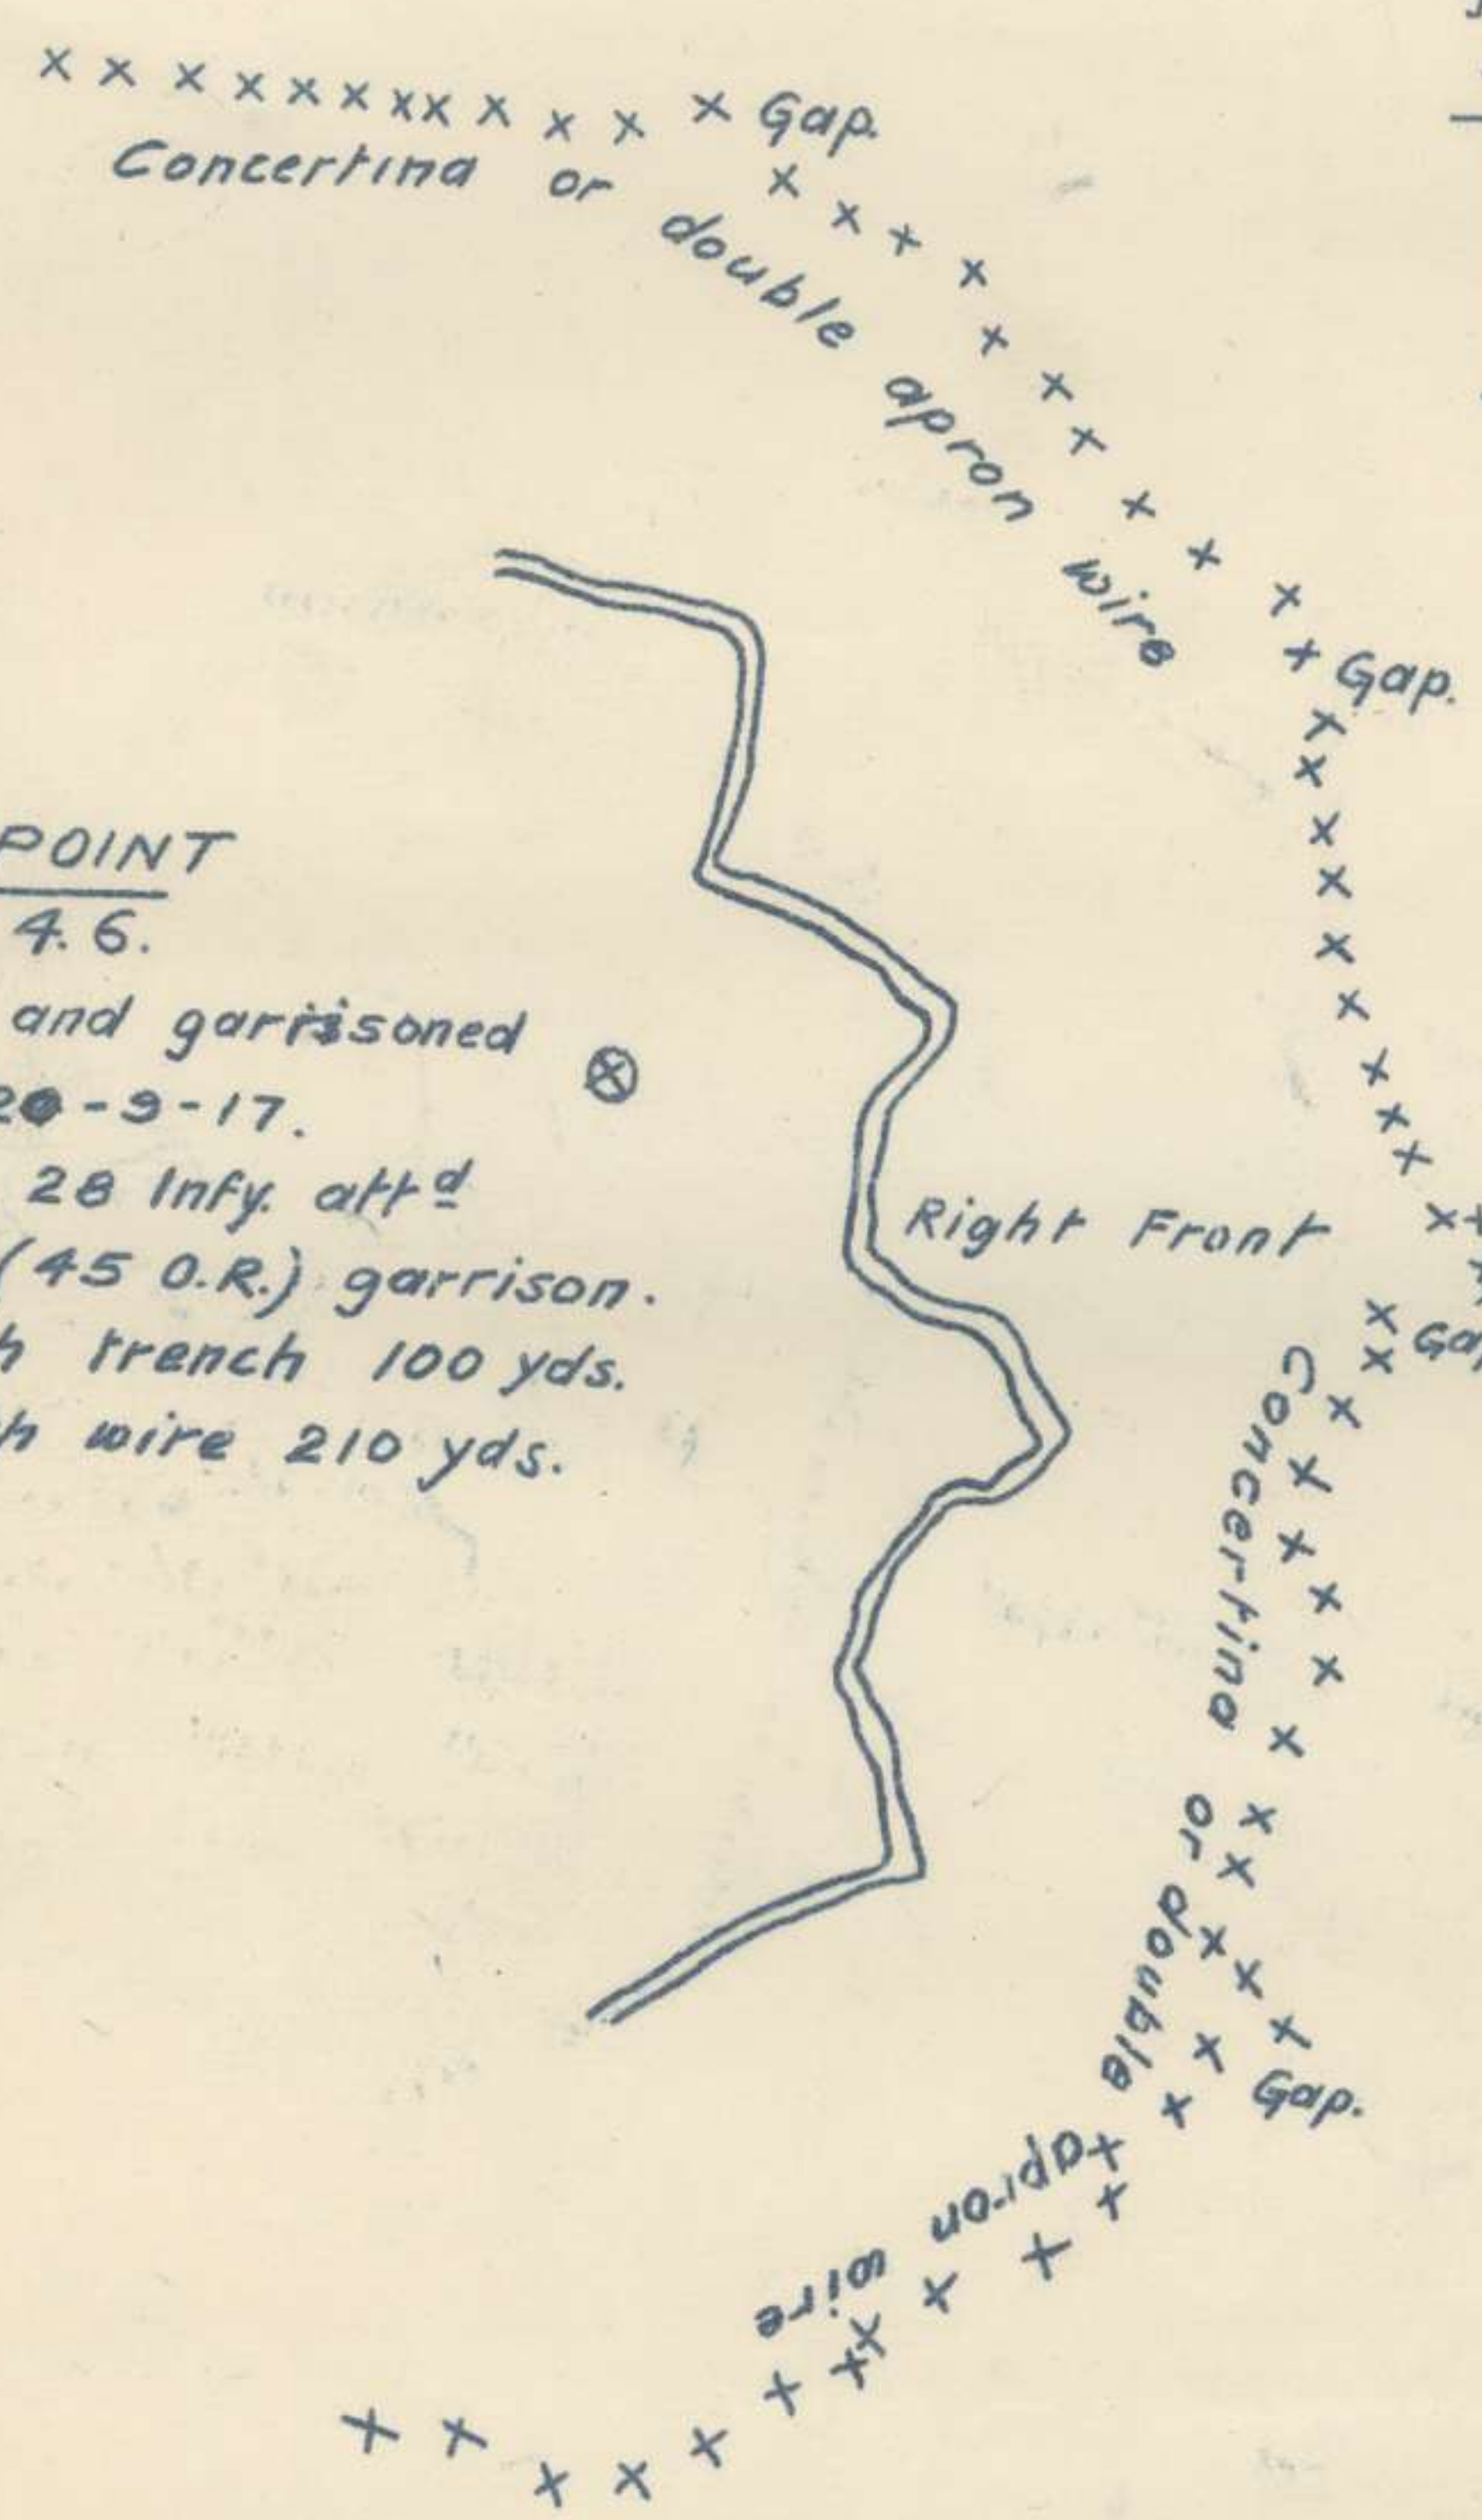 Gap.
Concertina or double apron wire
Gap.
POINT
4.6.
and garrisoned
-9-17.
28 Infy. attd
(45 O.R.) garrison.
trench 100 yds.
wire 210 yds.
Right Front
Concertina or double apron wire
Gap.